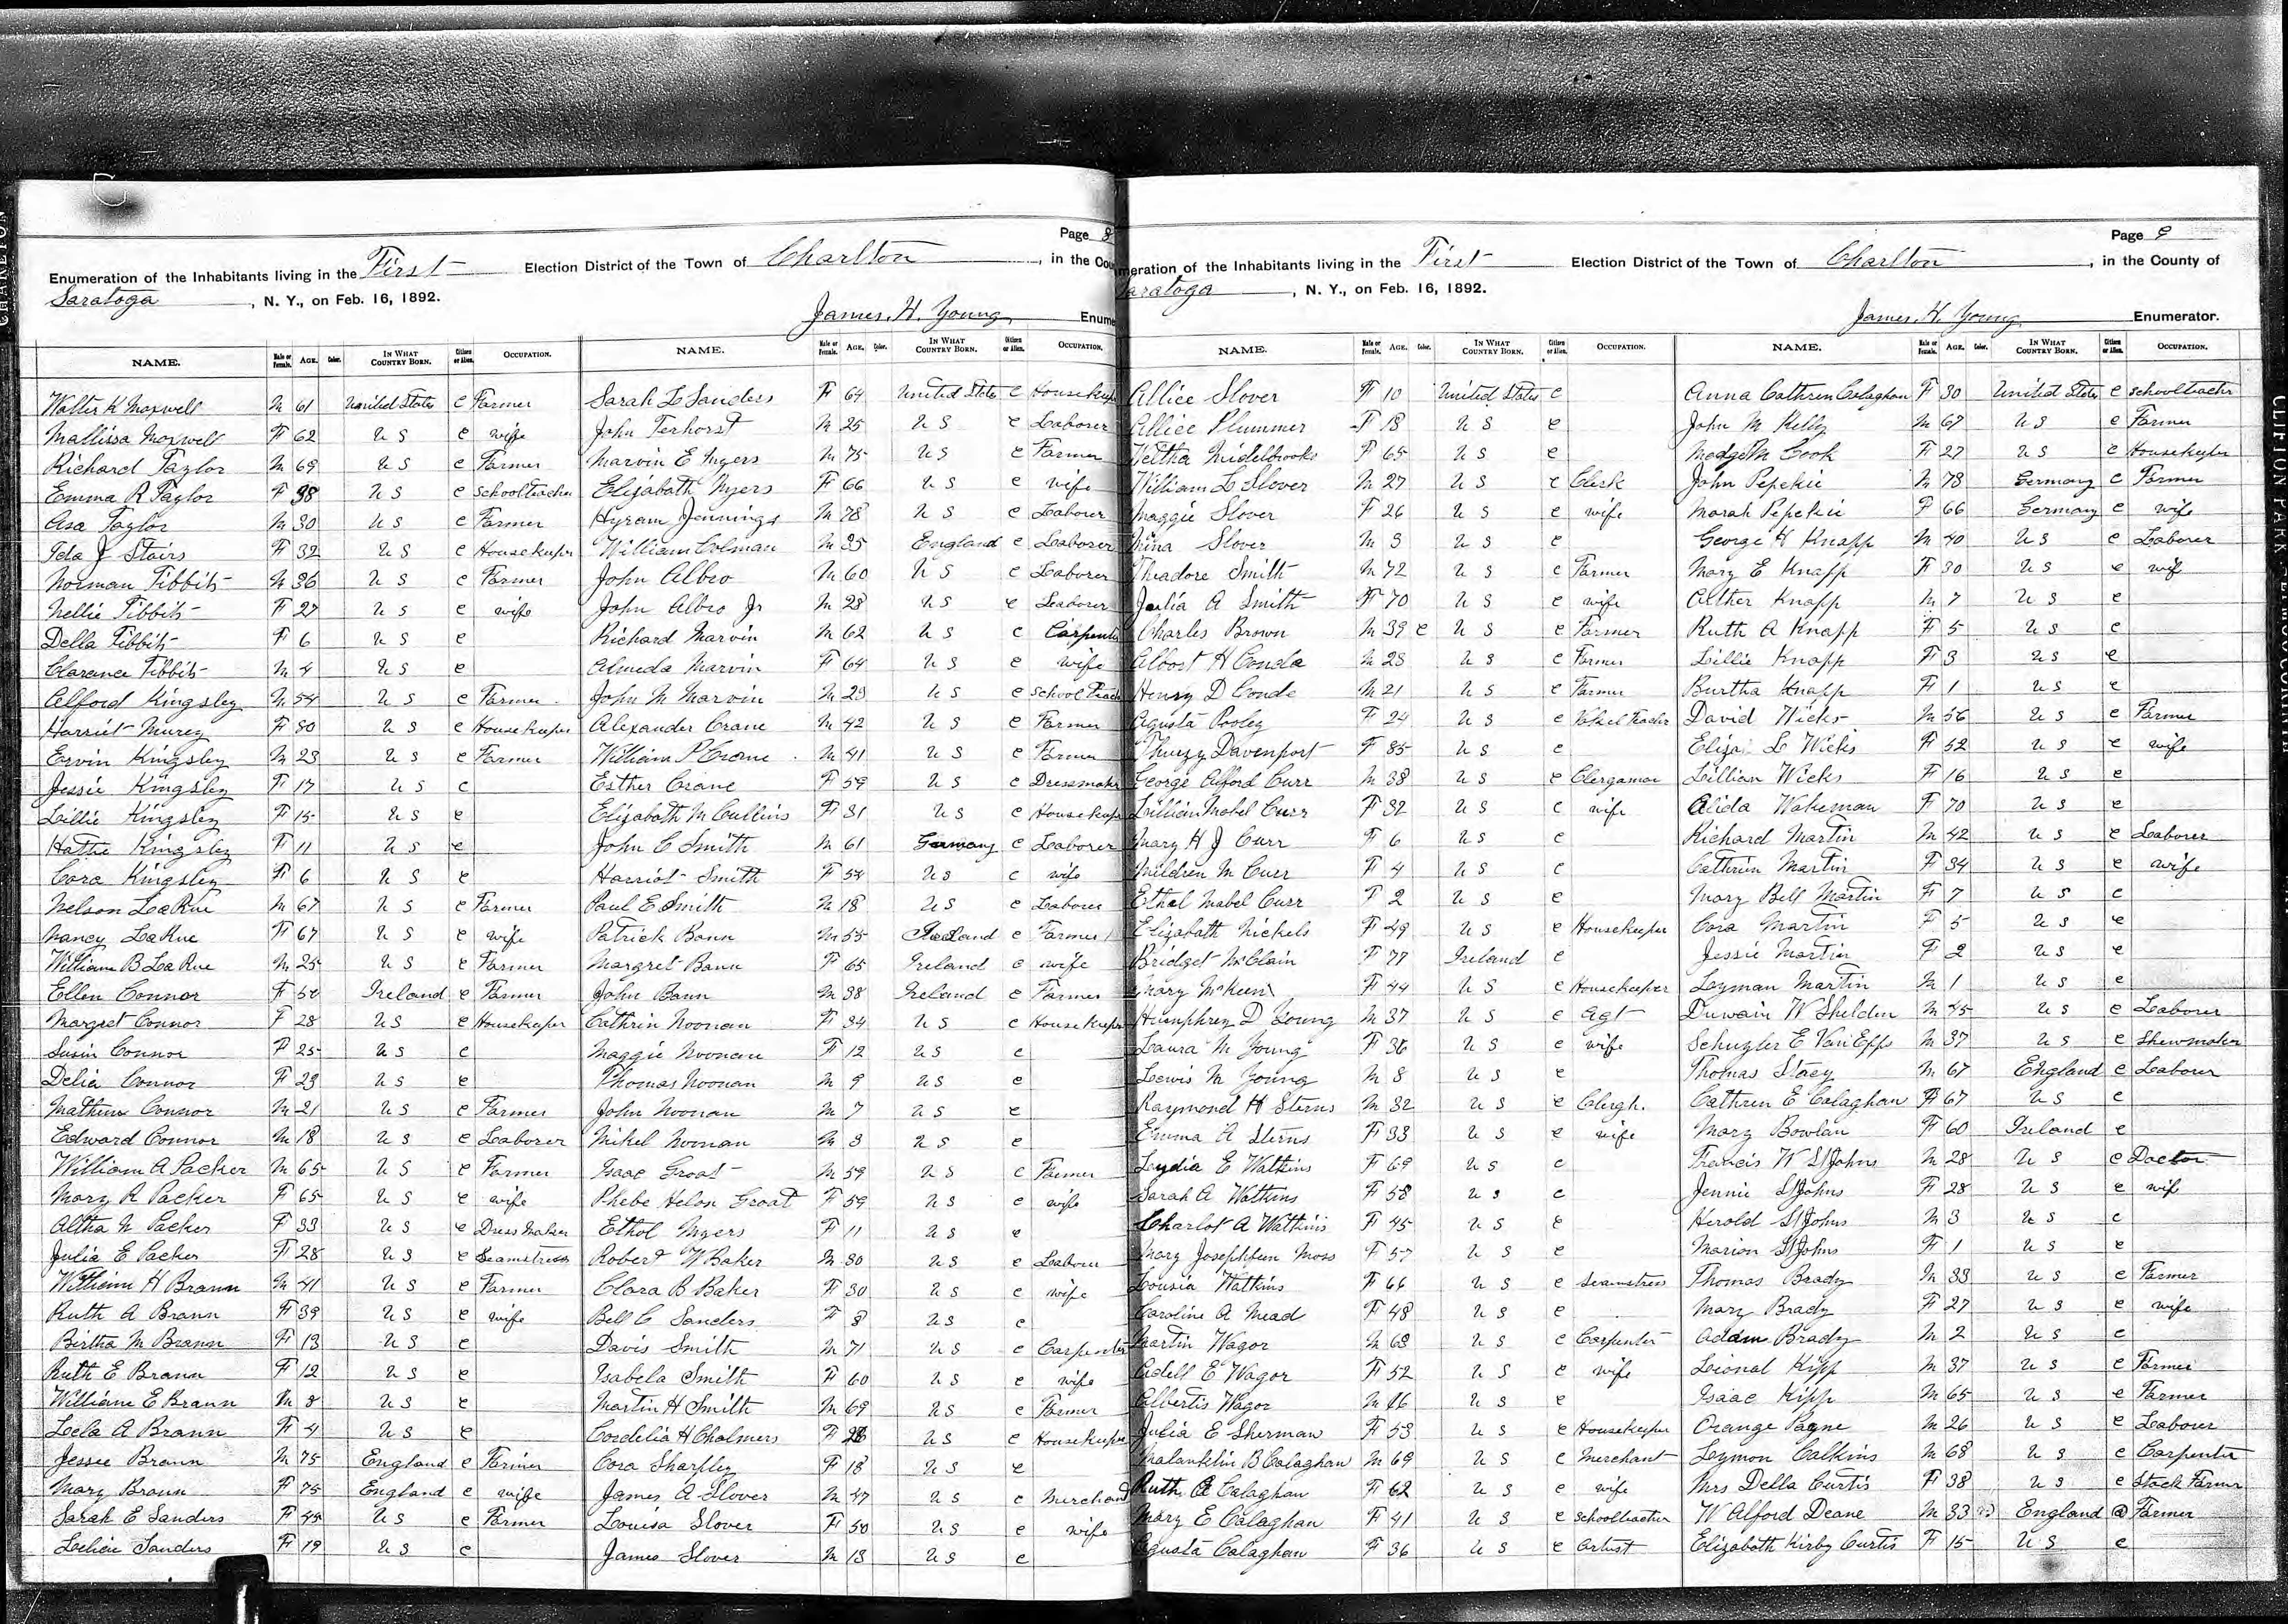 Page 8
Enumeration of the Inhabitants living in the First Election District of the Town of Charlton, in the Cou
Saratoga, N. Y., on Feb. 16, 1892.
James. H. Young, Enume
NAME. Male or Female. AGE. Color. IN WHAT COUNTRY BORN. Citizen or Alien. OCCUPATION.
Walter K Maxwell M 61 United States c Farmer
Mallissa Maxwell F 62 U S c wife
Richard Taylor M 69 U S c Farmer
Emma R Taylor F 38 U S c School teacher
Asa Taylor M 30 U S c Farmer
Ida J Stairs F 32 U S c Housekeeper
Norman Tibbits M 36 U S c Farmer
Nellie Tibbits F 27 U S c wife
Della Tibbits F 6 U S c
Clarance Tibbits M 4 U S c
Alford Kingsley M 54 U S c Farmer
Harriet Murey F 80 U S c Housekeeper
Ervin Kingsley M 23 U S c Farmer
Jessie Kingsley F 17 U S c
Lillie Kingsley F 15 U S c
Hattie Kingsley F 11 U S c
Cora Kingsley F 6 U S c
Nelson LaRue M 67 U S c Farmer
Nancy LaRue F 67 U S c wife
William B LaRue M 25 U S c Farmer
Ellen Connor F 50 Ireland c Farmer
Margret Connor F 28 U S c Housekeeper
Susin Connor F 25 U S c
Delia Connor F 23 U S c
Mathew Connor M 21 U S c Farmer
Edward Connor M 18 U S c Laborer
William A Packer M 65 U S c Farmer
Mary R Packer F 65 U S c wife
Altha N Packer F 33 U S c Dress Maker
Julia E Packer F 28 U S c Seamstress
William H Brann M 41 U S c Farmer
Ruth A Brann F 39 U S c wife
Birtha M Brann F 13 U S c
Ruth E Brann F 12 U S c
William E Brann M 8 U S c
Lela A Brann F 4 U S c
Jessee Brann M 75 England c Farmer
Mary Brann F 75 England c wife
Sarah E Sanders F 45 U S c Farmer
Sanders F 19 U S c
NAME. Male or Female. AGE. Color. IN WHAT COUNTRY BORN. Citizen or Alien. OCCUPATION.
Sarah L Sanders F 64 United States c Housekeep
John Terhorst M 25 U S c Laborer
Marvin E Myers M 75 U S c Farmer
Elizabath Myers F 66 U S c wife
Hyram Jennings M 78 U S c Laborer
William Colman M 35 England c Laborer
John Albro M 60 U S c Laborer
John Albro Jr M 28 U S c Laborer
Richard Marvin M 62 U S c Carpente
Almeda Marvin F 64 U S c wife
John M Marvin M 29 U S c School Teach
Alexander Crane M 42 U S c Farmer
William P Crane M 41 U S c Farmer
Esther Crane F 59 U S c Dressmaker
Elizabath McCullins F 31 U S c Housekeep
John C Smith M 61 Germany c Laborer
Harriot Smith F 54 U S c wife
Paul E Smith M 18 U S c Laborer
Patrick Bann M 55 Ireland c Farmer
Margret Bann F 65 Ireland c wife
John Bann M 38 Ireland c Farmer
Cathrin Noonan F 34 U S c Housekeeper
Maggie Noonan F 12 U S c
Thomas Noonan M 9 U S c
John Noonan M 7 U S c
Mikel Noonan M 3 U S c
Isaac Groat M 59 U S c Farmer
Phebe Helon Groat F 59 U S c wife
Ethol Myers F 11 U S c
Robert W Baker M 30 U S c Laborer
Clara B Baker F 30 U S c wife
Bell C Sanders F 8 U S c
Davis Smith M 71 U S c Carpenter
Isabela Smith F 60 U S c wife
Martin H Smith M 69 U S c Farmer
Cordelia H Chalmers F U S c Housekeeper
Cora Sharpley F 18 U S c
James A Slover M 47 U S c Merchand
Louisa Slover F 50 U S c wife
James Slover M 13 U S c
Page 9
meration of the Inhabitants living in the First Election District of the Town of Charlton, in the County of
aratoga, N. Y., on Feb. 16, 1892.
James. H. Young Enumerator.
NAME. Male or Female. AGE. Color. IN WHAT COUNTRY BORN. Citizen or Alien. OCCUPATION.
Alliee Slover F 10 United States c
Alliee Plummer F 18 U S c
Midelbrooks F 65 U S c
William L Slover M 27 U S c Clerk
Maggie Slover F 26 U S c wife
Nina Slover M 3 U S c
Theadore Smith M 72 U S c Farmer
Julia A Smith F 70 U S c wife
Charles Brown M 39 c U S c Farmer
Albost H Conda M 23 U S c Farmer
Henry D Conde M 21 U S c Farmer
Agusta Pooley F 24 U S c Teacher
Thurzy Davenport F 85 U S c
George Alford Curr M 38 U S c Clergaman
Lillian Mabel Curr F 32 U S c wife
Mary H J Curr F 6 U S c
Mildren M Curr F 4 U S c
Ethel Mabel Curr F 2 U S c
Elizabath Nickels F 49 U S c Housekeeper
Bridget McClain F 77 Ireland c
Mary McKeen F 44 U S c Housekeeper
Humphrey D Young M 37 U S c Agt
Laura M Young F 36 U S c wife
Lewis M Young M 8 U S c
Raymond H Sterns M 32 U S c Clergh.
Emma A Sterns F 33 U S c wife
Lydia E Watkins F 69 U S c
Sarah A Watkins F 58 U S c
Charlot A Watkins F 45 U S c
Mary Josephheen Moss F 57 U S c
Lousia Watkins F 66 U S c Seamstress
Caroline A Mead F 48 U S c
Martin Wagor M 68 U S c Carpenter
Adell E Wagor F 52 U S c wife
Albertis Wagor M 16 U S c
Julia E Sherman F 53 U S c Housekeeper
Malanklin B Calaghan M 69 U S c Merchant
Ruth A Calaghan F 62 U S c wife
Mary E Calaghan F 41 U S c Schoolteacher
Agusta Calaghan F 36 U S c Artist
NAME. Male or Female. AGE. Color. IN WHAT COUNTRY BORN. Citizen or Alien. OCCUPATION.
Anna Cathren Calaghan F 30 United States c School teacher
John M Kelly M 67 U S c Farmer
Madge M Cook F 27 U S c Housekeeper
John Pepekie M 78 Germany c Farmer
Marah Pepekie F 66 Germany c wife
George H Knapp M 40 U S c Laborer
Mary E Knapp F 30 U S c wife
Alther Knapp M 7 U S c
Ruth A Knapp F 5 U S c
Lillie Knapp F 3 U S c
Burtha Knapp F 1 U S c
David Wicks M 56 U S c Farmer
Eliza L Wicks F 52 U S c wife
Lillian Wicks F 16 U S c
Alida Wakeman F 70 U S c
Richard Martin M 42 U S c Laborer
Cathrien Martin F 34 U S c wife
Mary Bell Martin F 7 U S c
Cora Martin F 5 U S c
Jessie Martin F 2 U S c
Leyman Martin M 1 U S c
Duwain W Shelden M 45 U S c Laborer
Schuyler E Van Epps M 37 U S c Shewmaker
Thomas Stacy M 67 England c Labour
Cathren E Calaghan F 67 U S c
Mary Bowlan F 60 Ireland c
Francis W St Johns M 28 U S c Doctor
Jennie St Johns F 28 U S c wife
Herold St Johns M 3 U S c
Marion St Johns F 1 U S c
Thomas Brady M 33 U S c Farmer
Mary Brady F 27 U S c wife
Adam Brady M 2 U S c
Lional Kipp M 37 U S c Farmer
Isaac Kipp M 65 U S c Farmer
Orange Payne M 26 U S c Labour
Leymon Calkins M 68 U S c Carpenter
Mrs Della Curtis F 38 U S c Stock Farmer
W Alford Deane M 33 England a Farmer
Elizabath Kirby Curtis F 15 U S c
CLIFTON PARK